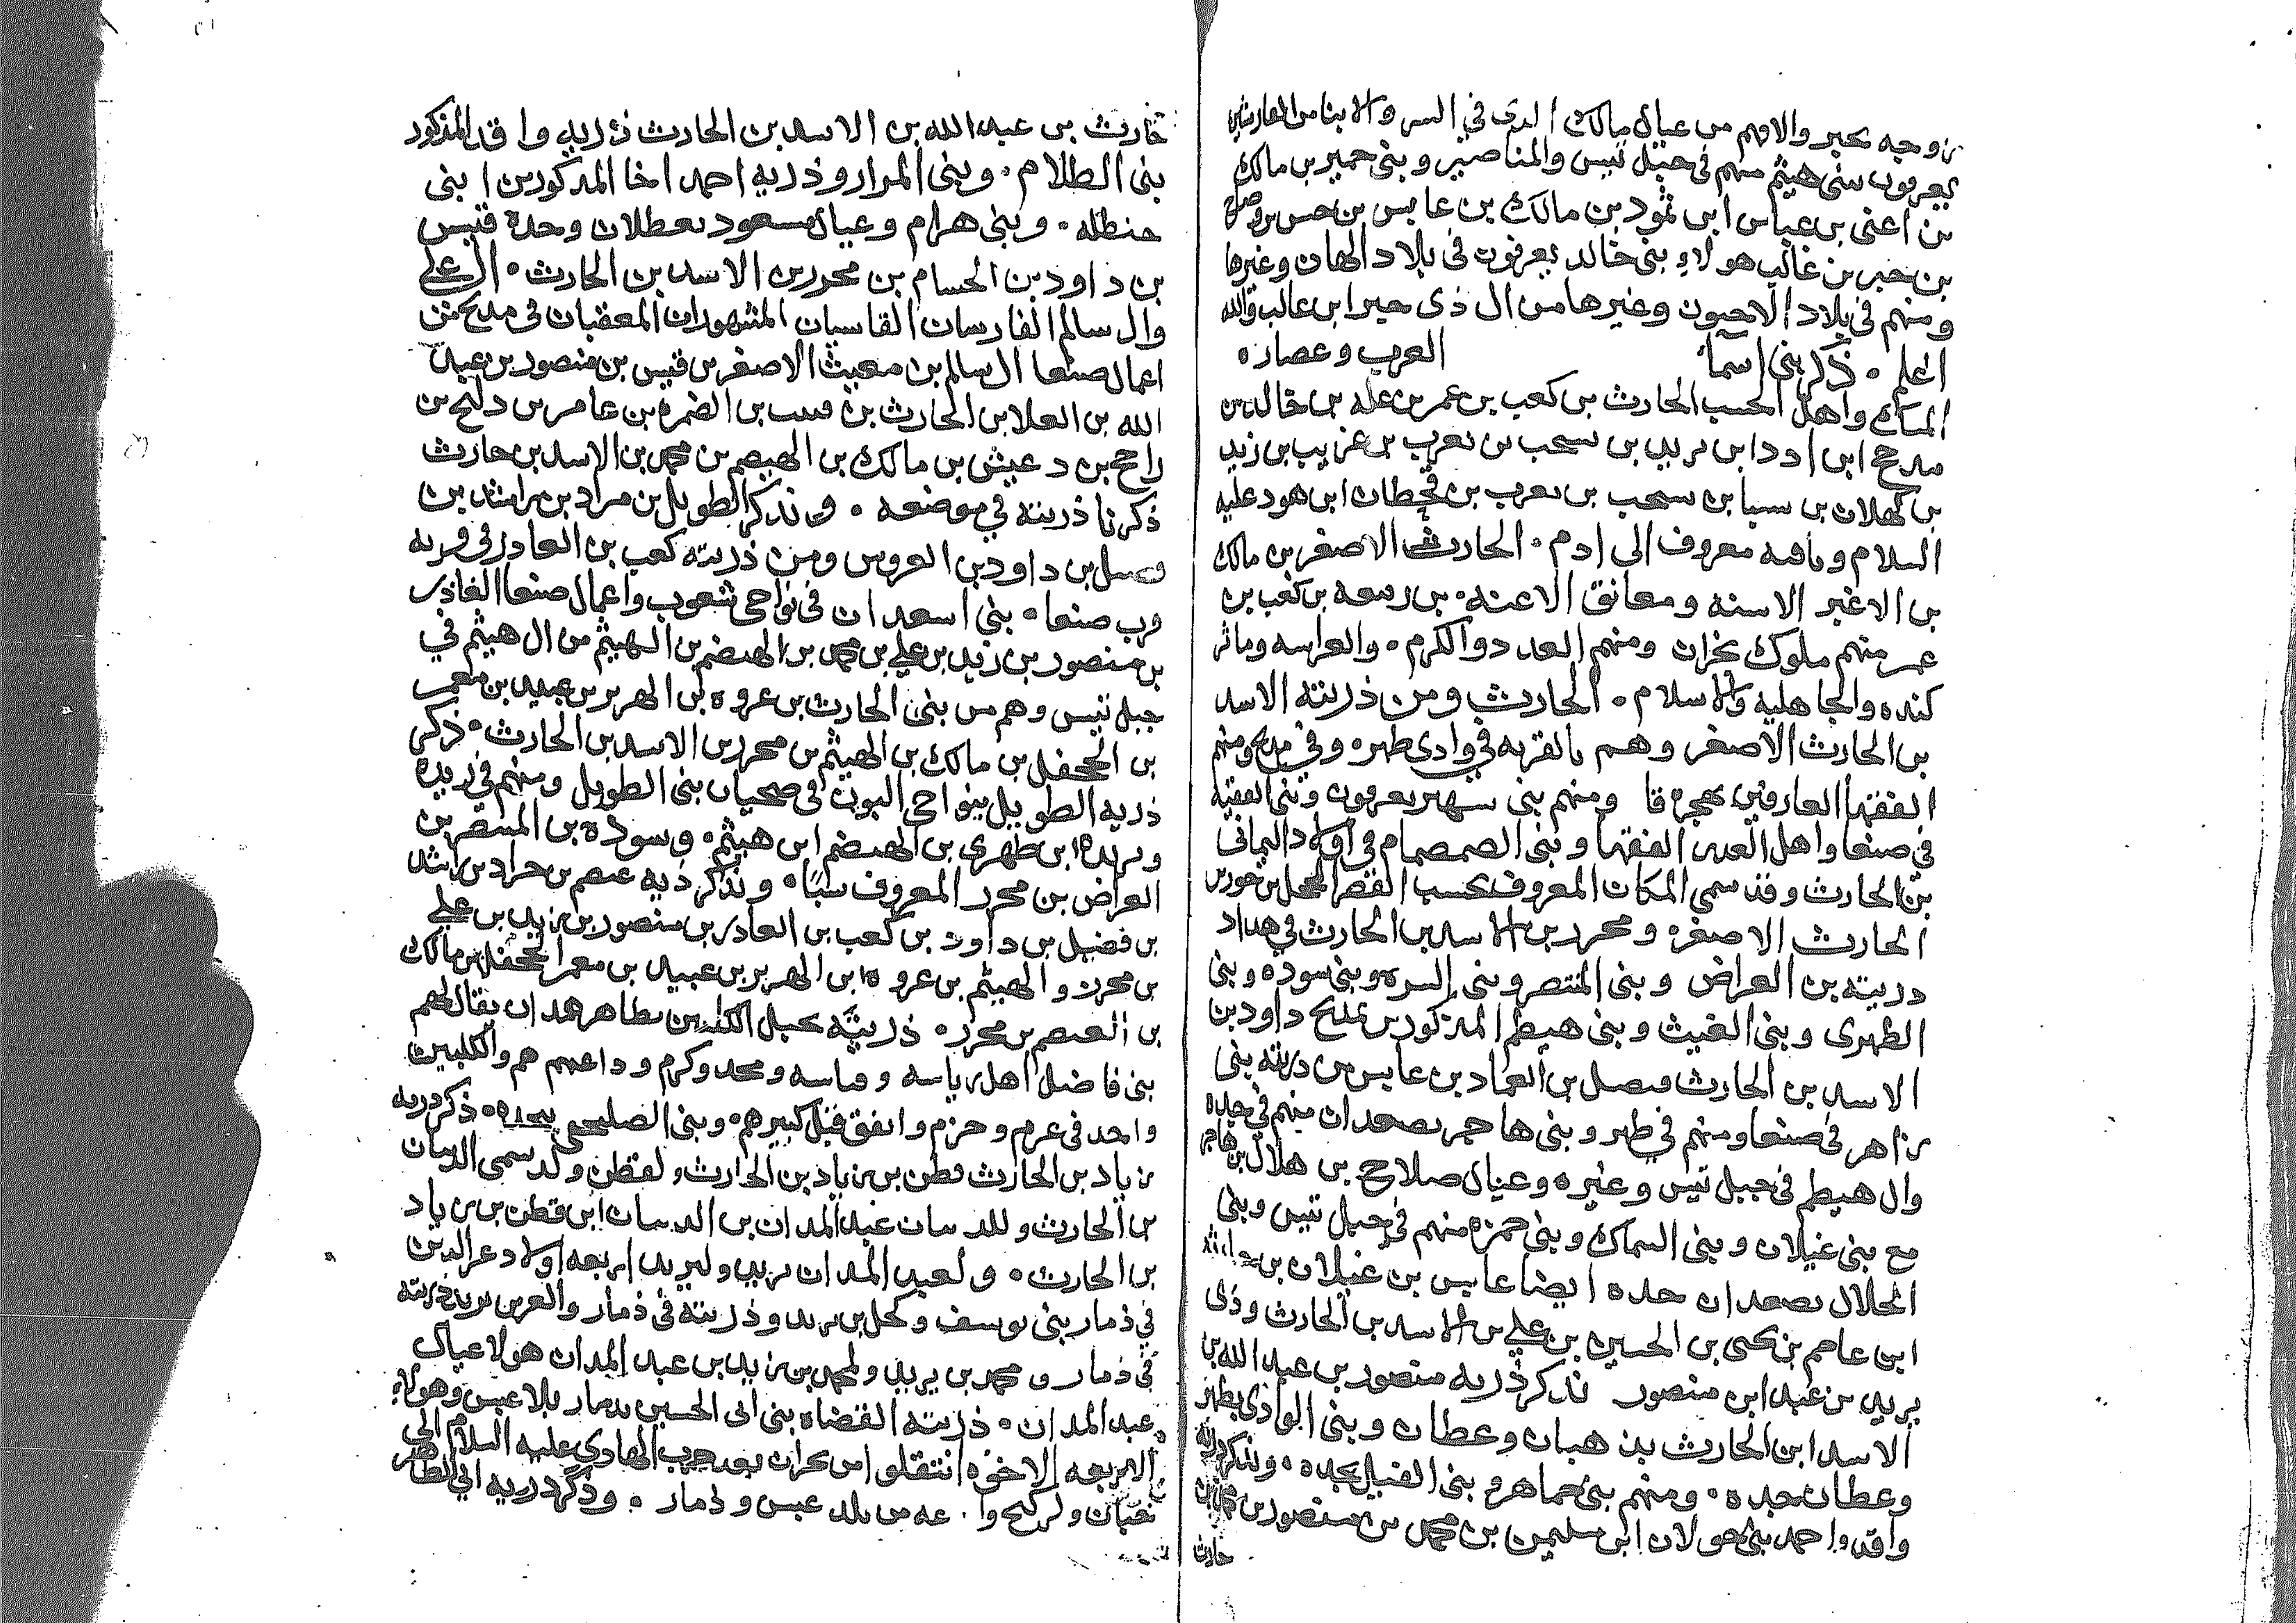 زوجه بحير والافهم من عيال مالك الذى في السر والابنا من الحارث بن
يعرفون ببنى هيثم منهم فى جبل تيس والمناصير وبنى حمير بن مالك
من اعنى بن عباس ابن ثمود بن مالك بن عابس بن حسن بن
بن حبر بن غالب هولاء بنى خالد يعرفون فى بلاد الهان وغيرها
ومنهم فى بلاد الاحبون وغيرها من ال ذى حير ابن غالب والله
اعلم ٠ ذكر بنى اسما العرب وعصاره
المسك واهل الحسب الحارث بن كعب بن عمر بن عله بن خالد بن
مدحج ابن ادد ابن يريد بن سحب بن يعرب بن عريب بن زيد
بن كهلان بن سبا بن سحب بن يعرب بن قحطان ابن هود عليه
السلام وباقيه معروف الى ادم ٠ الحارث الاصغر بن مالك
بن الاغبر الاسنه ومعانق الاعنه ٠ بن ربيعه بن كعب بن
عمر منهم ملوك نجران ومنهم العدد والكرم ٠ والفراسه وماثر
كنده والجاهليه والاسلام ٠ الحارث ومن ذريته الاسد
بن الحارث الاصغر وهم بالقريه فى وادى ظهره وفى مدح ومنهم
الفقها العارفين بهجره قا ومنهم بنى سهير يعرفون وبنى الفقيه
فى صنعا واهل العدين الفقها وبنى الصمصام فى اولاد اليمانى
بن الحارث وقد سمى المكان المعروف بحسب القصر الجحفل بن محرر بن
الحارث الاصغره ومحرر بن الاسد بن الحارث فى هداد
ذريته بن العراض وبنى المنتصر وبنى السره وبنى سوده وبنى
الظهرى وبنى الغيث وبنى هيطم المذكورين بمدح داود بن
الاسد بن الحارث فيصل بن العماد بن عابس من ذريته بنى
زاهر فى صنعا ومنهم فى ظهر وبنى هاجر بصعدان منهم فى حده
وال هيطم فى جبل تيس وغيره وعيال صلاح بن هلال بن هاجر
مع بنى غيلان وبنى السماك وبنى حمزه منهم فى جبل تيس وبنى
الحلال بصعدان حده ايضا عابس بن غيلان بن
ابن عاصم بن يحى بن الحسين بن على بن الاسد بن الحارث وذى
يريد بن عبد ابن منصور نذكر ذريه منصور بن عبد الله بن
الاسد ابن الحارث بن هبان وعطان وبنى الوادى بظهر
وعطان حده ٠ ومنهم بنى حماهر وبنى الفيل بحده ٠ ونذكر ذريه
واقد واحمد بنى حولان ابن سليمن بن محمد بن منصور بن
حارث
حارث بن عبد الله بن الاسد بن الحارث ذريه واقد المذكور
بنى الظلام ٠ وبنى المرار وذريه احمد اخا المذكورين ابنى
حنظله ٠ وبنى هرام وعيال مسعود بعطلان وحده قيس
بن داود بن الحسام بن محرر بن الاسد بن الحارث ٠ ال على
وال سالم الفارسان القاسيان المشهوران المعقبان فى مدح من
اعمال صنعا ال سالم بن معيث الاصغر بن قيس بن منصور بن عبد
الله بن العلا بن الحارث بن قيس بن الضمره بن عامر بن دلح بن
راجح بن دعيش بن مالك بن الهيصم بن محمد بن الاسد بن حارث
ذكرنا ذريته فى موضعه ٠ ونذكر الطويل بن مراد بن راشد بن
فيصل بن داود بن العروس ومن ذريته كعب بن العادر فى قريه
قرب صنعا ٠ بنى اسعد ان فى نواحى شعوب واعمال صنعا الغادر
بن منصور بن زيد بن على بن محمد بن الهيضم بن الهيثم من ال هيثم في
جبل تيس وهم من بنى الحارث بن عروه ابن الهربر بن عبيد بن معمر
بن الجحفل بن مالك بن الهيثم بن محرر بن الاسد بن الحارث ٠ ذكر
ذريه الطويل بنواحى البون فى صحيان بنى الطويل ومنهم فى ريده
وبريده ابن ظهرى بن الهيضم ابن هيثم ٠ وسوده بن المنتصر بن
العراض بن محرر المعروف سبا ٠ ونذكر ذريه عصم بن جراد بن راشد
بن فضيل بن داود بن كعب بن العادر بن منصور بن زيد بن على
بن محرر والهيثم بن عروه ابن الهربر بن عبيد بن معمر الجحفل بن مالك
بن العصم بن محرر ٠ ذريته بجبل الكلبين بظاهر همدان يقال لهم
بنى فاضل اهل رياسه وفراسه ومجد وكرم وداعيهم هم والكلبين
واحد فى عرم وحزم واتفق قبل كبيرهم وبنى الصليحى ٠ ذكر ذريه
زياد بن الحارث قطن بن زياد بن الحارث ولقطن ولد سمى الديان
بن الحارث وللديان عبد المدان بن الديان ابن قطن بن زياد
بن الحارث ٠ ولعبد المدان يريد وليريد اربعه اولاد عز الدين
في ذمار بنى يوسف وكحل بن يريد وذريته فى ذمار والعرين يريد ذريته
فى ذمار ومحمد بن يريد ولمحمد بن زيد بن عبد المدان هولا عيال
عبد المدان ٠ ذريته القضاه بنى ابى الحسين بدمار بلاد عبس وهولاء
الاربعه الاخوه انتقلوا من نجران بعد حرب الهادى عليه السلام الى
خبان ولركيح وا عه من بلد عبس وذمار ٠ وذكر ذريه ابى الطاهر